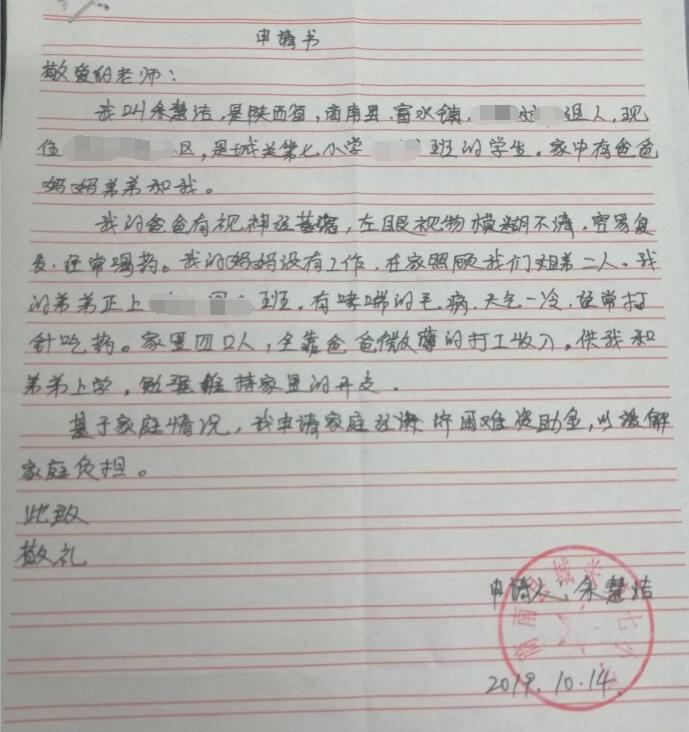 申请书
敬爱的老师：
我叫余慧洁，是陕西省，商南县，富水镇，组人，现
住区，是城关第七小学班的学生。家中有爸爸
妈妈弟弟和我。
我的爸爸有视神经萎缩，左眼视物模糊不清，容易复
发，经常喝药。我的妈妈没有工作，在家照顾我们姐弟二人。我
的弟弟正上班，有哮喘的毛病，天气一冷，经常打
针吃药。家里四口人，全靠爸爸微薄的打工收入，供我和
弟弟上学，勉强维持家里的开支。
基于家庭情况，我申请家庭经济困难资助金，以缓解
家庭负担。
此致
敬礼
申请人：余慧洁
2019.10.14